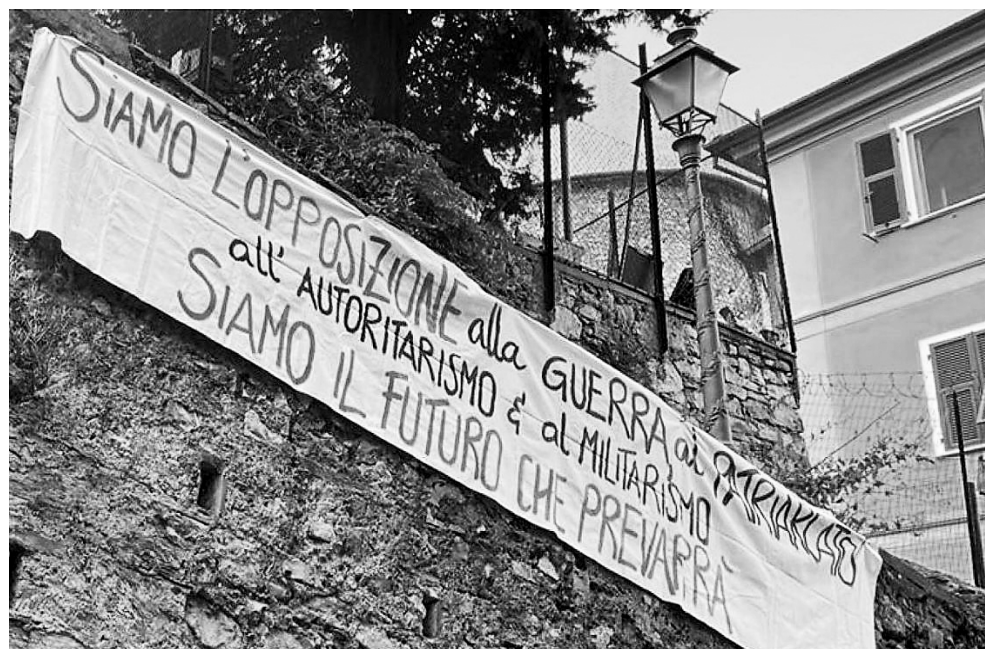 SiAMO L'OPPOSIZIONE alla GUERRA al PATRIARCATO
all' AUTORITARISMO & al MILITARISMO
SiAMO IL FUTURO CHE PREVARRÀ